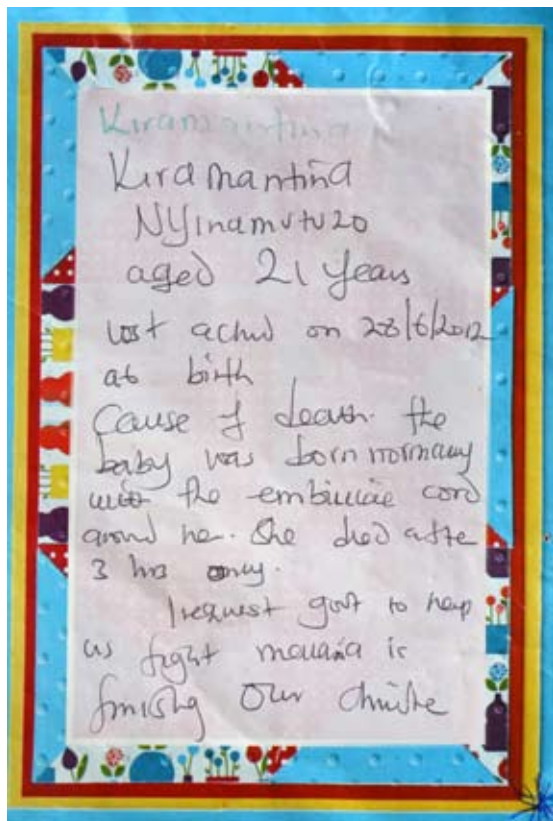 Kiramantina
Kiramantina
NYinamutuzo
aged 21 years
lost a child on 28/6/2012
at birth
Cause of death. the
baby was born normally
with the embilical cord
around her. She died after
3 hrs only.
I request govt to help
us fight malaria is
finishing our children